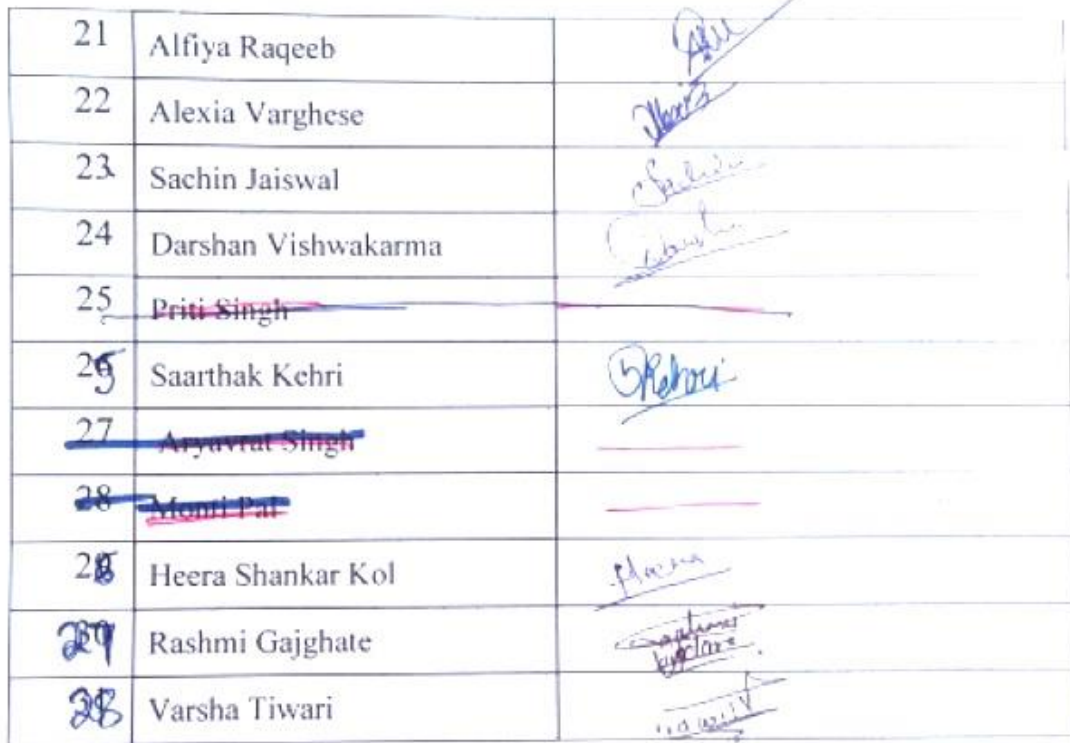 21 Alfiya Raqeeb
22 Alexia Varghese
23 Sachin Jaiswal Sachin
24 Darshan Vishwakarma
25 Priti Singh
25 Saarthak Kehri SKehri
27 Aryavrat Singh
28 Monti Pal
26 Heera Shankar Kol Heera
27 Rashmi Gajghate
28 Varsha Tiwari